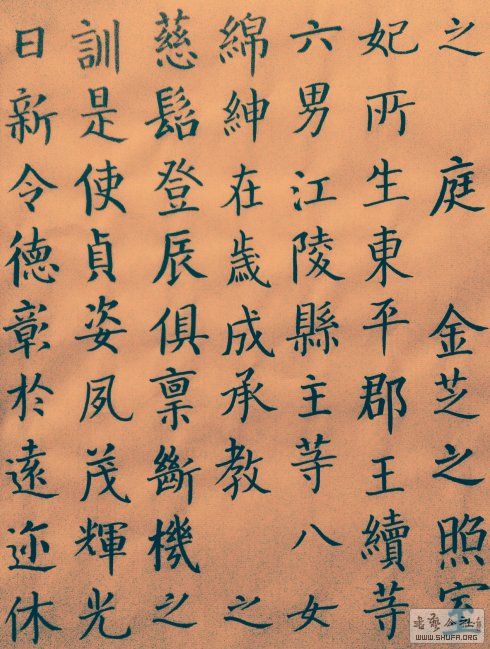 之 庭 金芝之照
妃所生東平郡王續等
六男江陵縣主等八女
綿紳在歲成承教 之
慈髫登辰俱稟斷機之
訓是使貞姿夙茂輝光
日新令德彰於遠迩休
WWW.SHUFA.ORG